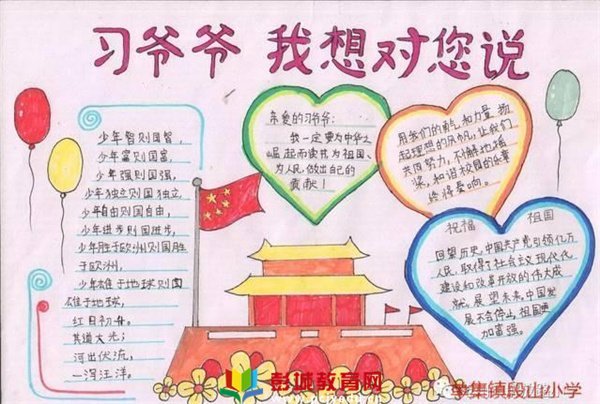 习爷爷 我想对您说
少年智则国智，
少年富则国富，
少年强则国强，
少年独立则国独立，
少年自由则国自由，
少年进步则国进步，
少年胜于欧洲则国胜
于欧洲，
少年雄于地球则国
雄于地球，
红日初升，
其道大光；
河出伏流，
一泻汪洋。
亲爱的习爷爷：
我一定要为中华之
崛起而读书，为祖国、
为人民，做出自己的
贡献！
用我们的勇气和力量，扬
起理想的风帆，让我们
共同努力，不懈地拼
搏，和谐校园的乐章
终将奏响。
祝福 祖国
回望历史，中国共产党引领亿万
人民，取得了社会主义现代化
建设和改革开放的伟大成
就。展望未来，中国发
展不会停止，祖国更
加富强。
彭城教育网
集镇段山小学